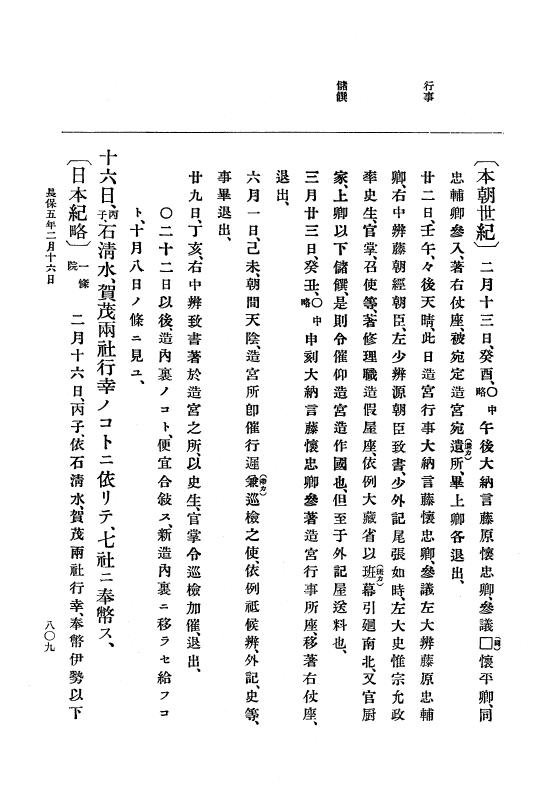 行事
儲饌
〔本朝世紀〕二月十三日、癸酉、〇中略午後大納言藤原懷忠卿、參議□(同カ)懷平卿、同
忠輔卿參入、著右仗座、被宛定造宮宛遣所、畢上卿各退出、
廿二日、壬午、々後天晴、此日造宮行事大納言藤懷忠卿、參議左大辨藤原忠輔
卿、右中辨藤朝經朝臣、左少辨源朝臣致書、少外記尾張如時、左大史惟宗允政
率史生、官掌、召使等、著修理職造假屋座、依例大藏省以班幕引廻南北、又官厨
家、上卿以下儲饌、是則令催仰造宮造作國也、但至于外記屋送料也、
三月廿三日、癸丑、〇中略申刻大納言藤懷忠卿參著造宮行事所座、移著右仗座、
退出、
六月一日、己未、朝間天陰、造宮所卽催行遲兼巡檢之使、依例祗候辨、外記、史等、
事畢退出、
廿九日、丁亥、右中辨致書著於造宮之所、以史生、官掌令巡檢加催、退出、
〇二十二日以後、造內裏ノコト、便宜合敍ス、新造內裏ニ移ラセ給フコ
ト、十月八日ノ條ニ見ユ、
十六日、丙子、石淸水、賀茂兩社行幸ノコトニ依リテ、七社ニ奉幣ス、
〔日本紀略〕一條院 二月十六日、丙子、依石淸水、賀茂兩社行幸、奉幣伊勢以下
長保五年二月十六日
八〇九